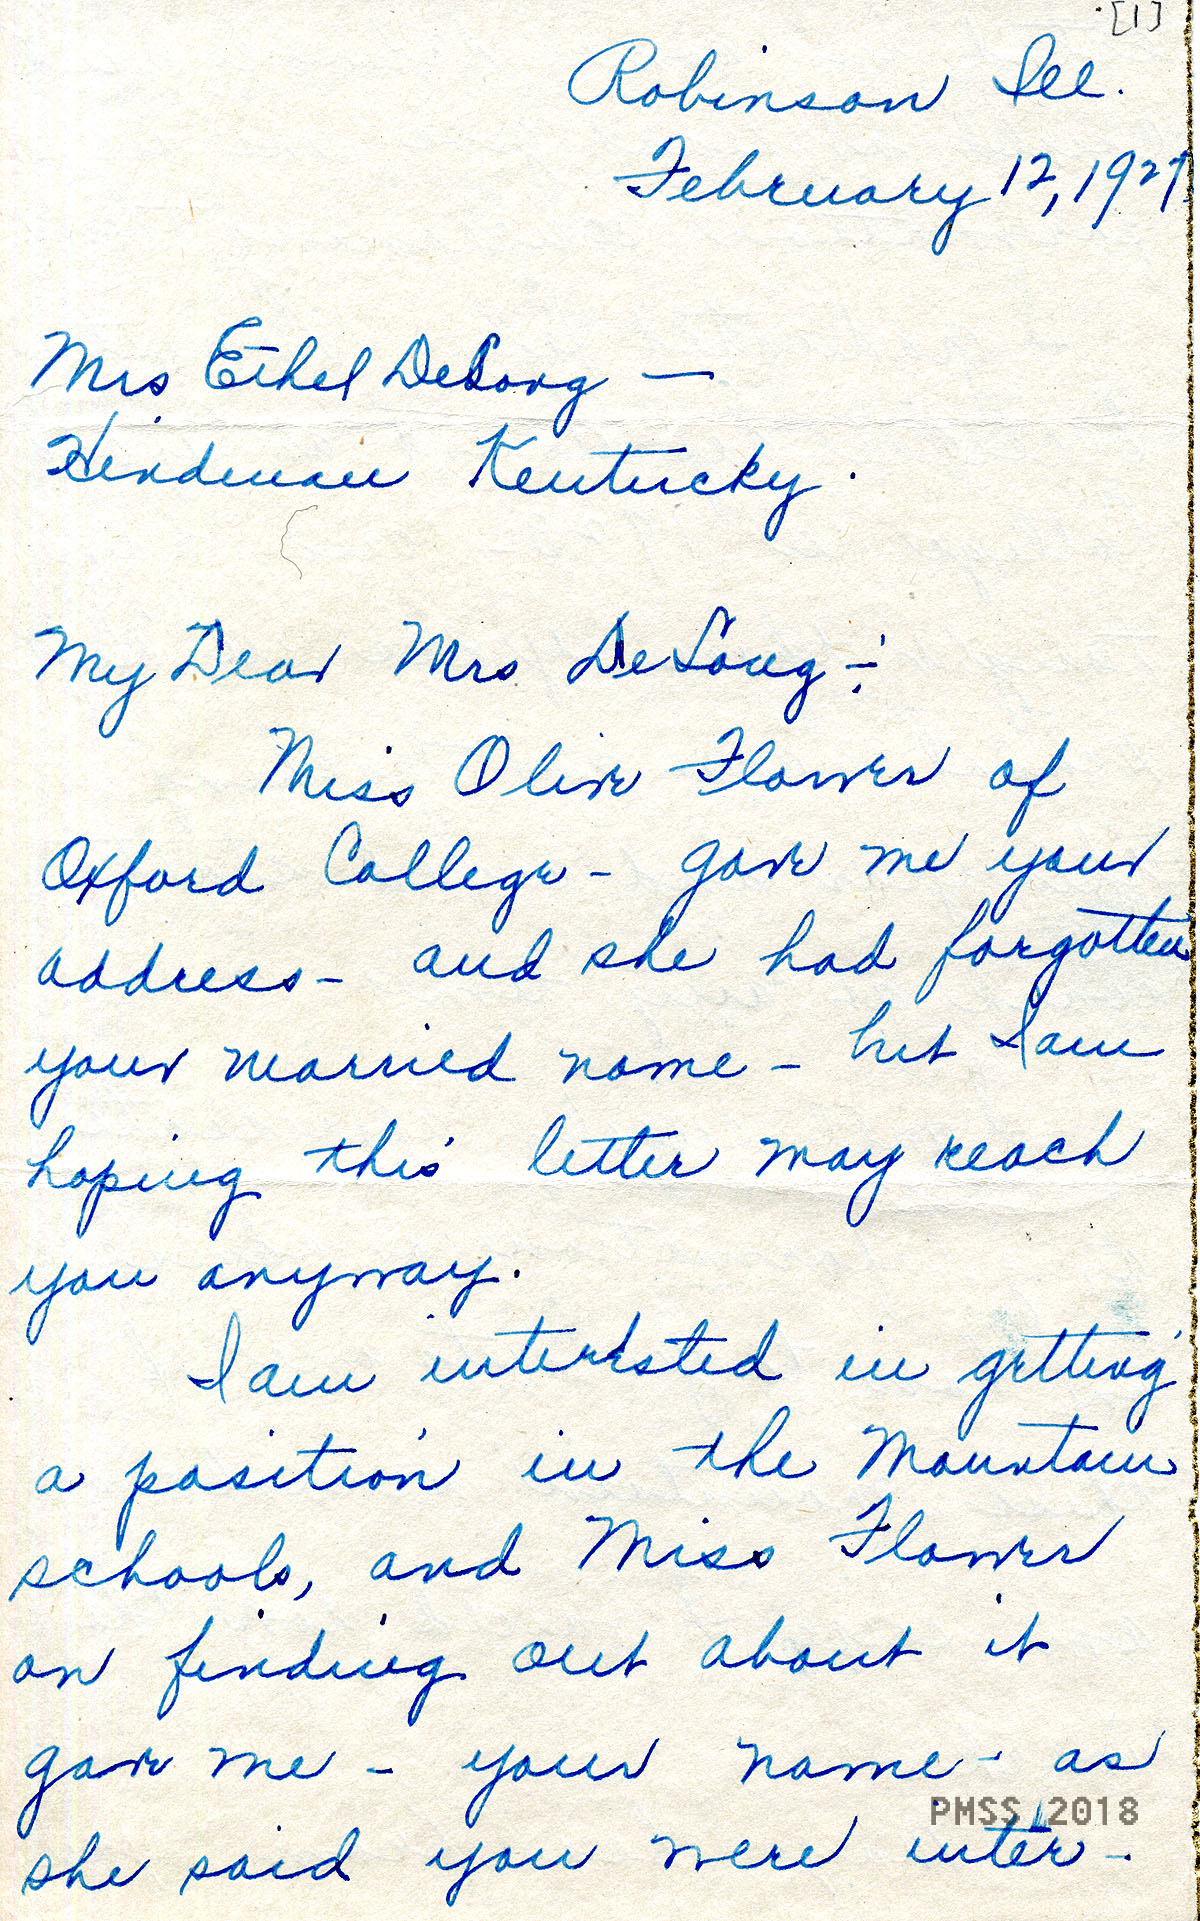 [1]
Robinson Ill.
February 12, 1927
Mrs Ethel DeLong —
Hindman Kentucky.
My Dear Mrs DeLong ÷
Miss Olive Flower of
Oxford College - gave me your
address - and she had forgotten
your married name - but I am
hoping this letter may reach
you anyway.
I am interested in getting
a position in the Mountain
schools, and Miss Flower
on finding out about it
gave me - your name - as
PMSS 2018
she said you were inter-